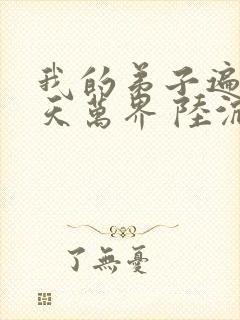 我的弟子遍
天萬界 陸沉
了無憂